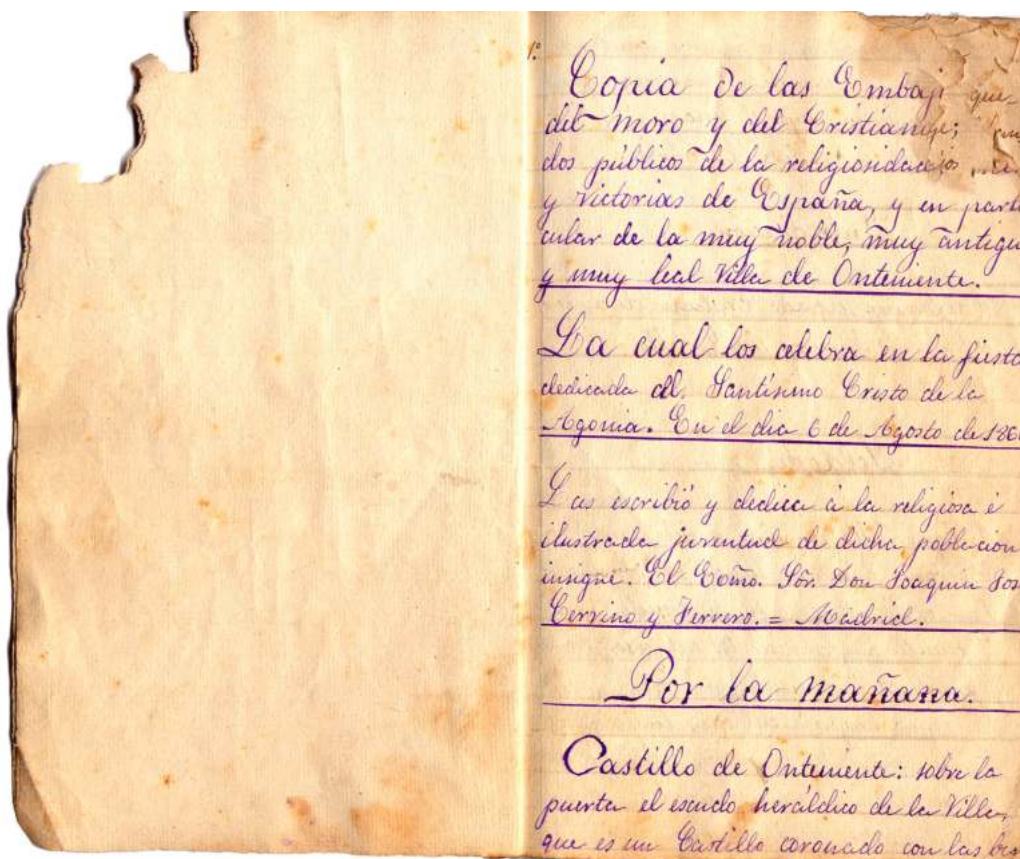 1º
Copia de las Embaj que
del moro y del Cristiano;
dos públicos de la religiosidad
y victorias de España, y en parti
cular de la muy noble, muy antigu
y muy leal Villa de Onteniente.
La cual los celebra en la fiesta
dedicada al Santísimo Cristo de la
Agonia. En el dia 6 de Agosto de 186
Las escribió y dedica á la religiosa é
ilustrada juventud de dicha poblacion
insigne. El Exmo. Sór. Don Joaquin Jos
Cervino y Ferrero. = Madrid.
Por la mañana.
Castillo de Onteniente: sobre la
puerta el escudo heráldico de la Villa,
que es un Castillo coronado con las